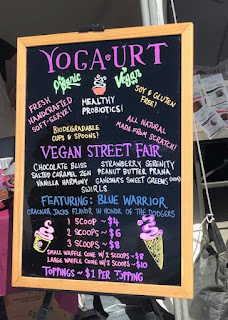 YOGA·URT
Organic
Vegan
FRESH
HANDCRAFTED
SOFT-SERVE!
HEALTHY
PROBIOTICS!
SOY & GLUTEN
FREE!
BIODEGRADABLE
CUPS & SPOONS!
ALL NATURAL
MADE FROM SCRATCH!
VEGAN STREET FAIR
CHOCOLATE BLISS STRAWBERRY SERENITY
SALTED CARAMEL ZEN PEANUT BUTTER PRANA
VANILLA HARMONY GANESHA'S SWEET GREENS
SWIRLS
FEATURING: BLUE WARRIOR
CRACKER JACKS FLAVOR IN HONOR OF THE DODGERS
1 SCOOP ~ $4
2 SCOOPS ~ $6
3 SCOOPS ~ $8
SMALL WAFFLE CONE W/ 2 SCOOPS ~ $8
LARGE WAFFLE CONE W/ 3 SCOOPS ~ $10
TOPPINGS ~ $1 PER TOPPING